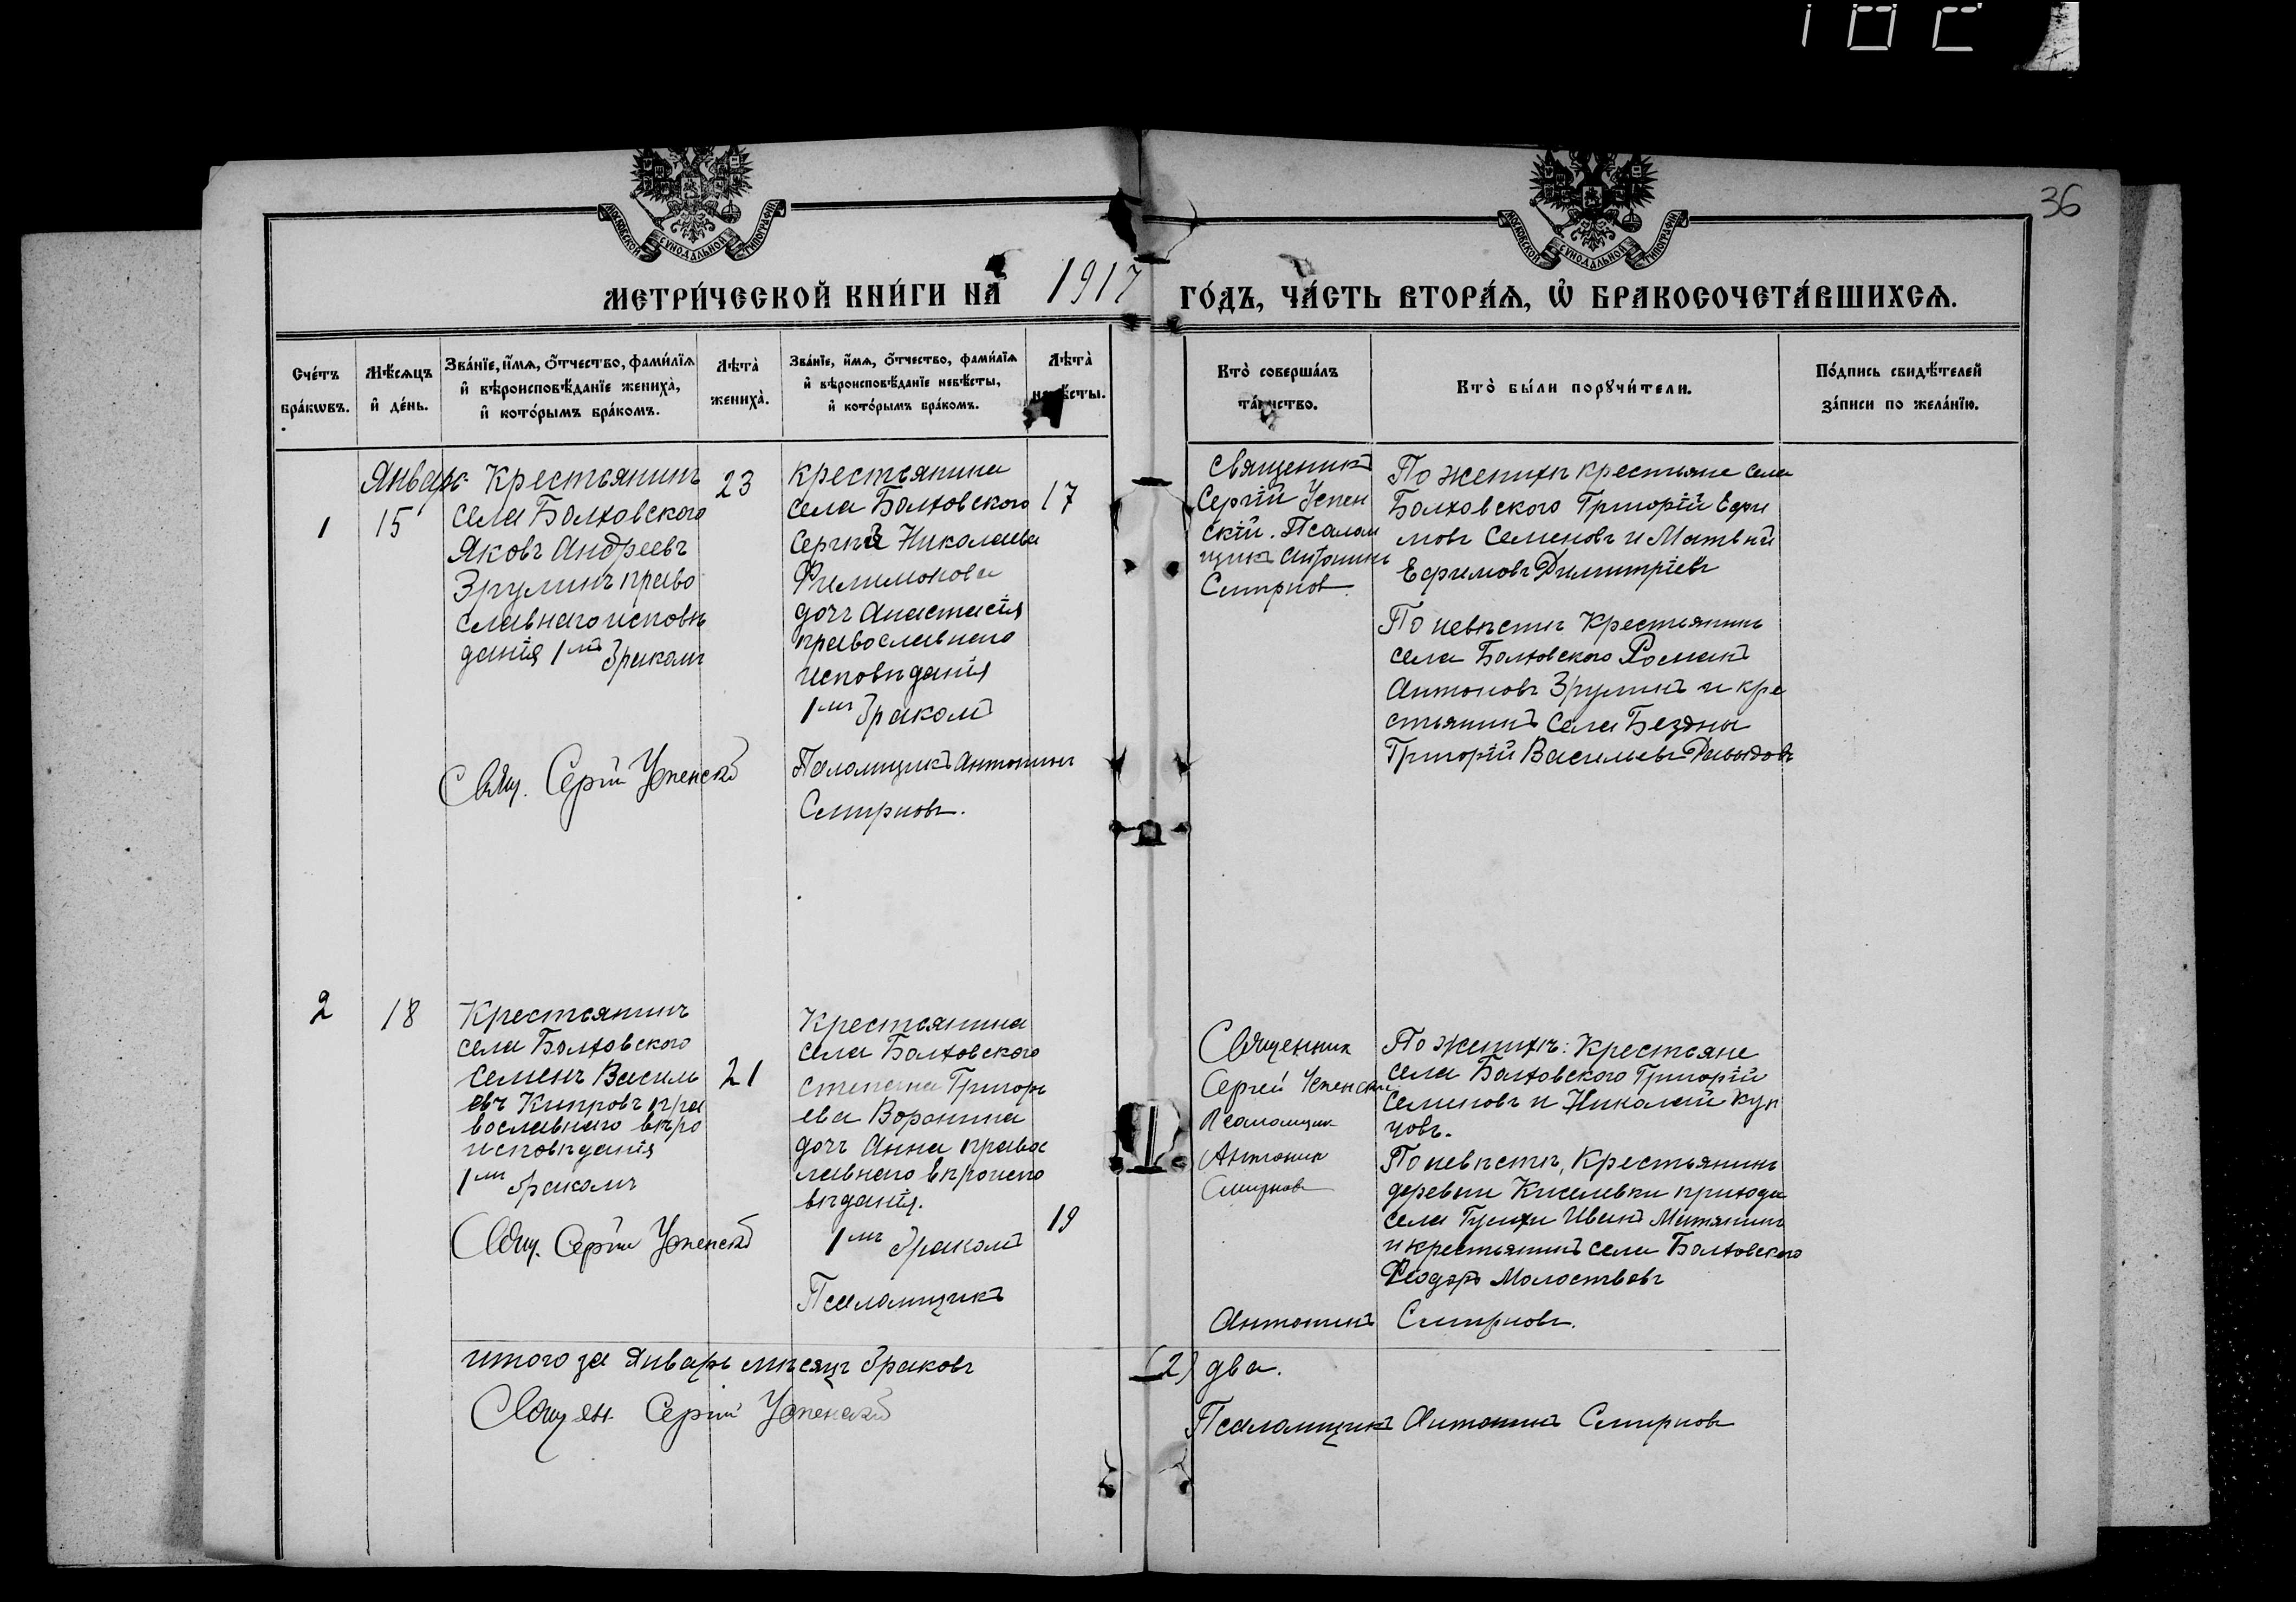 36
МОСКОВСКОЙ СѴНОДАЛЬНОЙ ТИПОГРАФІИ
МОСКОВСКОЙ СѴНОДАЛЬНОЙ ТИПОГРАФІИ
МЕТРИ́ЧЕСКОЙ КНИ́ГИ НА̀ 1917 ГО́ДЪ, ЧА́СТЬ ВТОРА́Ѧ, Ѽ БРАКОСОЧЕТА́ВШИХСѦ.
Сче́тъ
бра́кѡвъ.
Мѣ́сѧцъ
и҆ де́нь.
Зва́нїе, и҆́мѧ, ѻ҆́тчество, фами́лїѧ
и҆ вѣроисповѣ́данїе жениха̀,
и҆ кото́рымъ бра́комъ.
Лѣта̀
жениха̀.
Зва́нїе, и҆́мѧ, ѻ҆́тчество, фами́лїѧ
и҆ вѣроисповѣ́данїе невѣ́сты,
и҆ кото́рымъ бра́комъ.
Лѣта̀
невѣ́сты.
Кто̀ соверша́лъ
та́инство.
Кто̀ бы́ли порꙋчи́тели.
По́дпись свидѣ́телей
за́писи по жела́нїю.
1
Январь
15
Крестьянинъ
села Болховского
Яковъ Андреевъ
Зрулинъ право
славнаго исповѣ
данія 1мъ бракомъ
23
крестьянина
села Болховского
Сергѣя Николаева
Филимонова
дочь Анастасія
православнаго
исповѣданія
1мъ бракомъ
17
Свящ. Сергій Успенскій
Псаломщикъ Антонинъ
Смирновъ.
Священникъ
Сергій Успен
скій. Псалом
щикъ Антонинъ
Смирнов.
По женихѣ крестьяне села
Болховского Григорій Ефи
мовъ Семеновъ и Матвѣй
Ефимовъ Димитріевъ
По невѣстѣ Крестьянинъ
села Болховского Романъ
Антоновъ Зрулинъ и кре
стьянинъ села Бездны
Григорій Васильевъ Давыдовъ
2
18
Крестьянинъ
села Болховского
Семенъ Василь
евъ Кипровъ пра
вославнаго вѣро
исповѣданія
1мъ бракомъ
21
Свящ. Сергій Успенскій
Крестьянина
села Болховского
Степана Григорь
ева Воронина
дочь Анна правос
лавнаго вѣроиспо
вѣданія.
1мъ бракомъ
19
Псаломщикъ
Священник
Сергей Успенский
Псаломщик
Антонин
Смирновъ
По женихѣ: Крестьяне
села Болховского Григорій
Семеновъ и Николай Куп
човъ.
По невѣстѣ, Крестьянинъ
деревни Киселевки прихода
села Гусихи Иванъ Матянинъ
и крестьянинъ села Болховского
Феодоръ Молоствовъ
Антонинъ Смирновъ.
итого за Январь мѣсяцъ браковъ (2) два.
Священ. Сергій Успенскій
Псаломщикъ Антонинъ Смирновъ